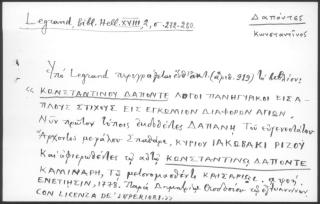 Legrand, Bibl. Hell. XVIII, 2, σ. 278-280.
Δαπόντες
Κωνσταντῖνος
Ὑπὸ Legrand περιγράφεται (ἀριθ. 919) τὸ βιβλίον:
« ΚΩΝΣΤΑΝΤΙΝΟΥ ΔΑΠΟΝΤΕ ΛΟΓΟΙ ΠΑΝΗΓΥΡΙΚΟΙ ΕΙΣ Α-
ΠΛΟΥΣ ΣΤΙΧΟΥΣ ΕΙΣ ΕΓΚΩΜΙΟΝ ΔΙΑΦΟΡΩΝ ΑΓΙΩΝ.
Νῦν πρῶτον τύποις ἐκδοθέντες ΔΑΠΑΝΗ Τοῦ εὐγενεστάτου
Ἄρχοντος μεγάλου Σπαθάρη, ΚΥΡΙΟΥ ΙΑΚΩΒΑΚΙ ΡΙΖΟΥ
Καὶ ἀφιερωθέντες τῷ αὐτῷ ΚΩΝΣΤΑΝΤΙΝΟΣ ΔΑΠΟΝΤΕ
ΚΑΜΙΝΑΡΗ, Τῷ μετονομασθέντι ΚΑΙΣΑΡΙῼ.
ΕΝΕΤΙΗΣΙΝ, 1778. Παρὰ Δημητρίῳ Θεοδοσίου τῷ ἐξ Ἰωαννίνων
CON LICENZA DE' SUPERIORI »